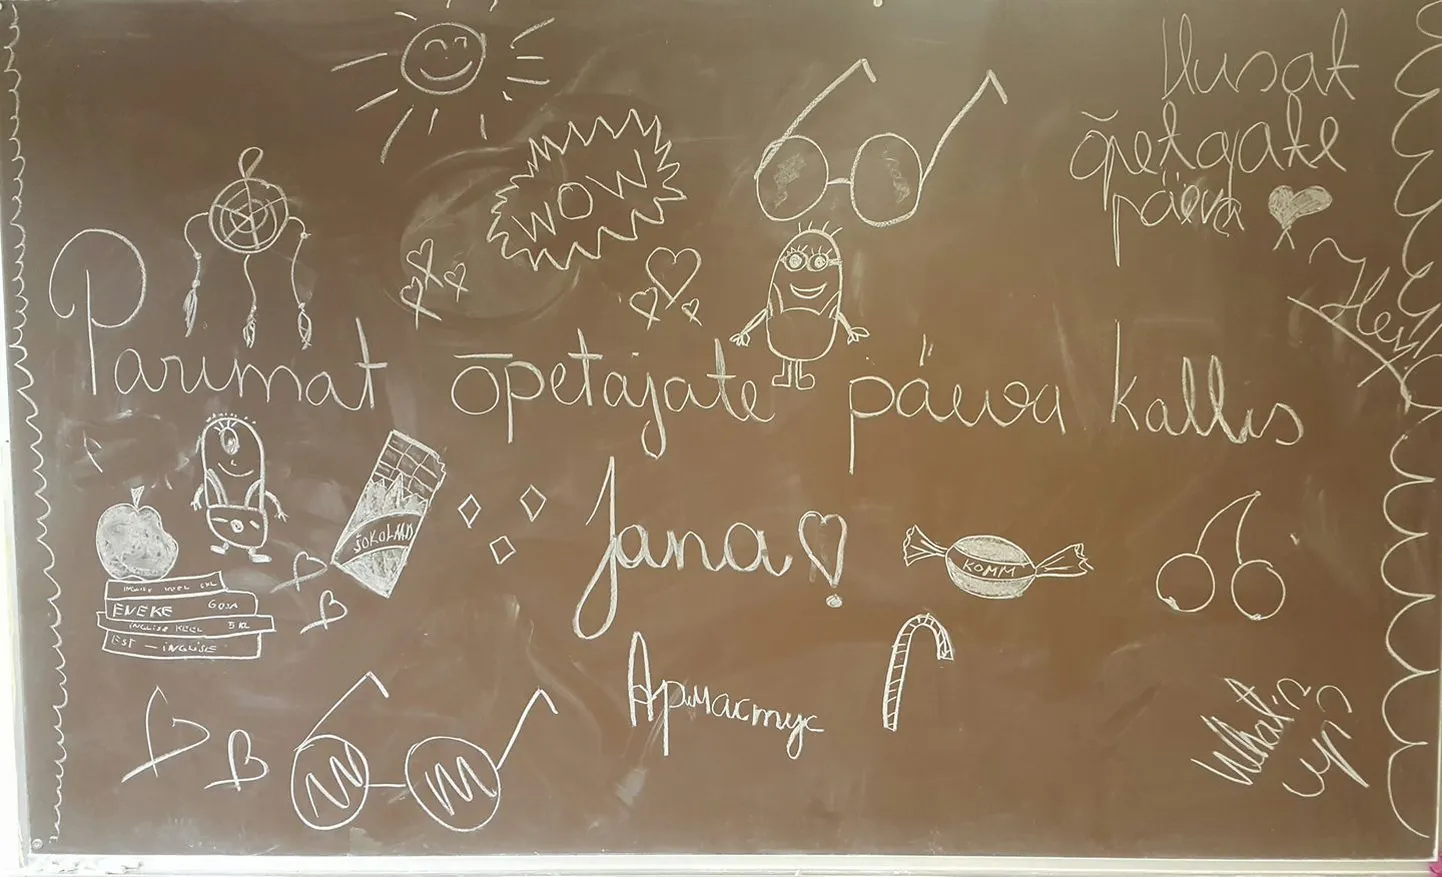 Ilusat
õpetajate
päeva
WOW
Hey!
Parimat õpetajate päeva kallis
Jana
ŠOKOLAAD
KOMM
ENEKE
INGLISE KEEL 5 KL
EST - INGLISE
Армастус
What's
up?